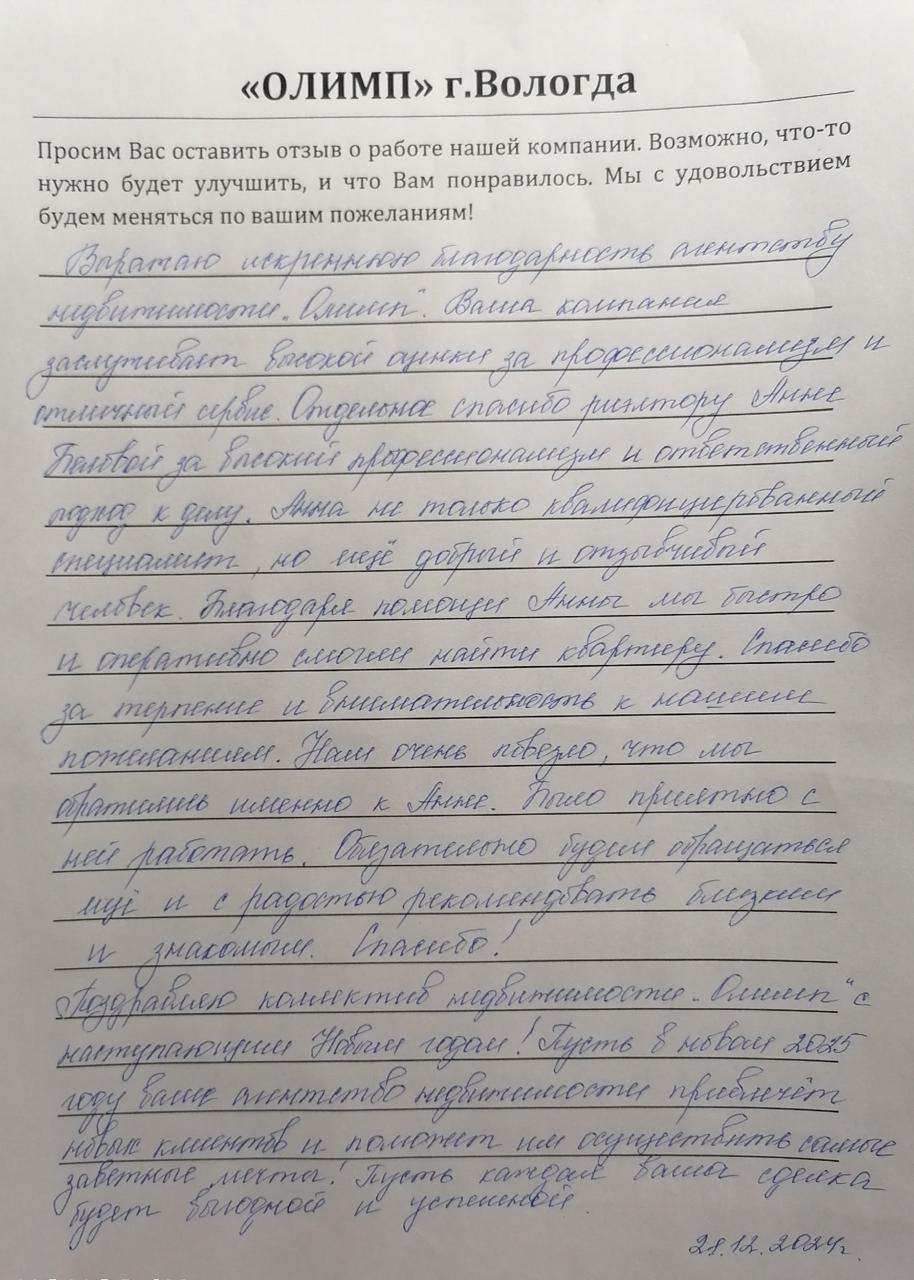 «ОЛИМП» г.Вологда
Просим Вас оставить отзыв о работе нашей компании. Возможно, что-то
нужно будет улучшить, и что Вам понравилось. Мы с удовольствием
будем меняться по вашим пожеланиям!
Выражаю искреннюю благодарность агентству
недвижимости „Олимп". Ваша компания
заслуживает высокой оценки за профессионализм и
отличный сервис. Отдельное спасибо риэлтору Анне
Беловой за высокий профессионализм и ответственный
подход к делу. Анна не только квалифицированный
специалист, но ещё добрый и отзывчивый
человек. Благодаря помощи Анны мы быстро
и оперативно смогли найти квартиру. Спасибо
за терпение и внимательность к нашим
пожеланиям. Нам очень повезло, что мы
обратились именно к Анне. Было приятно с
ней работать. Обязательно будем обращаться
ещё и с радостью рекомендовать близким
и знакомым. Спасибо!
Поздравляю коллектив недвижимости „Олимп" с
наступающим Новым годом! Пусть в новом 2025
году ваше агентство недвижимости привлечёт
новых клиентов и поможет им осуществить самые
заветные мечты! Пусть каждая ваша сделка
будет выгодной и успешной.
28.12.2024г.